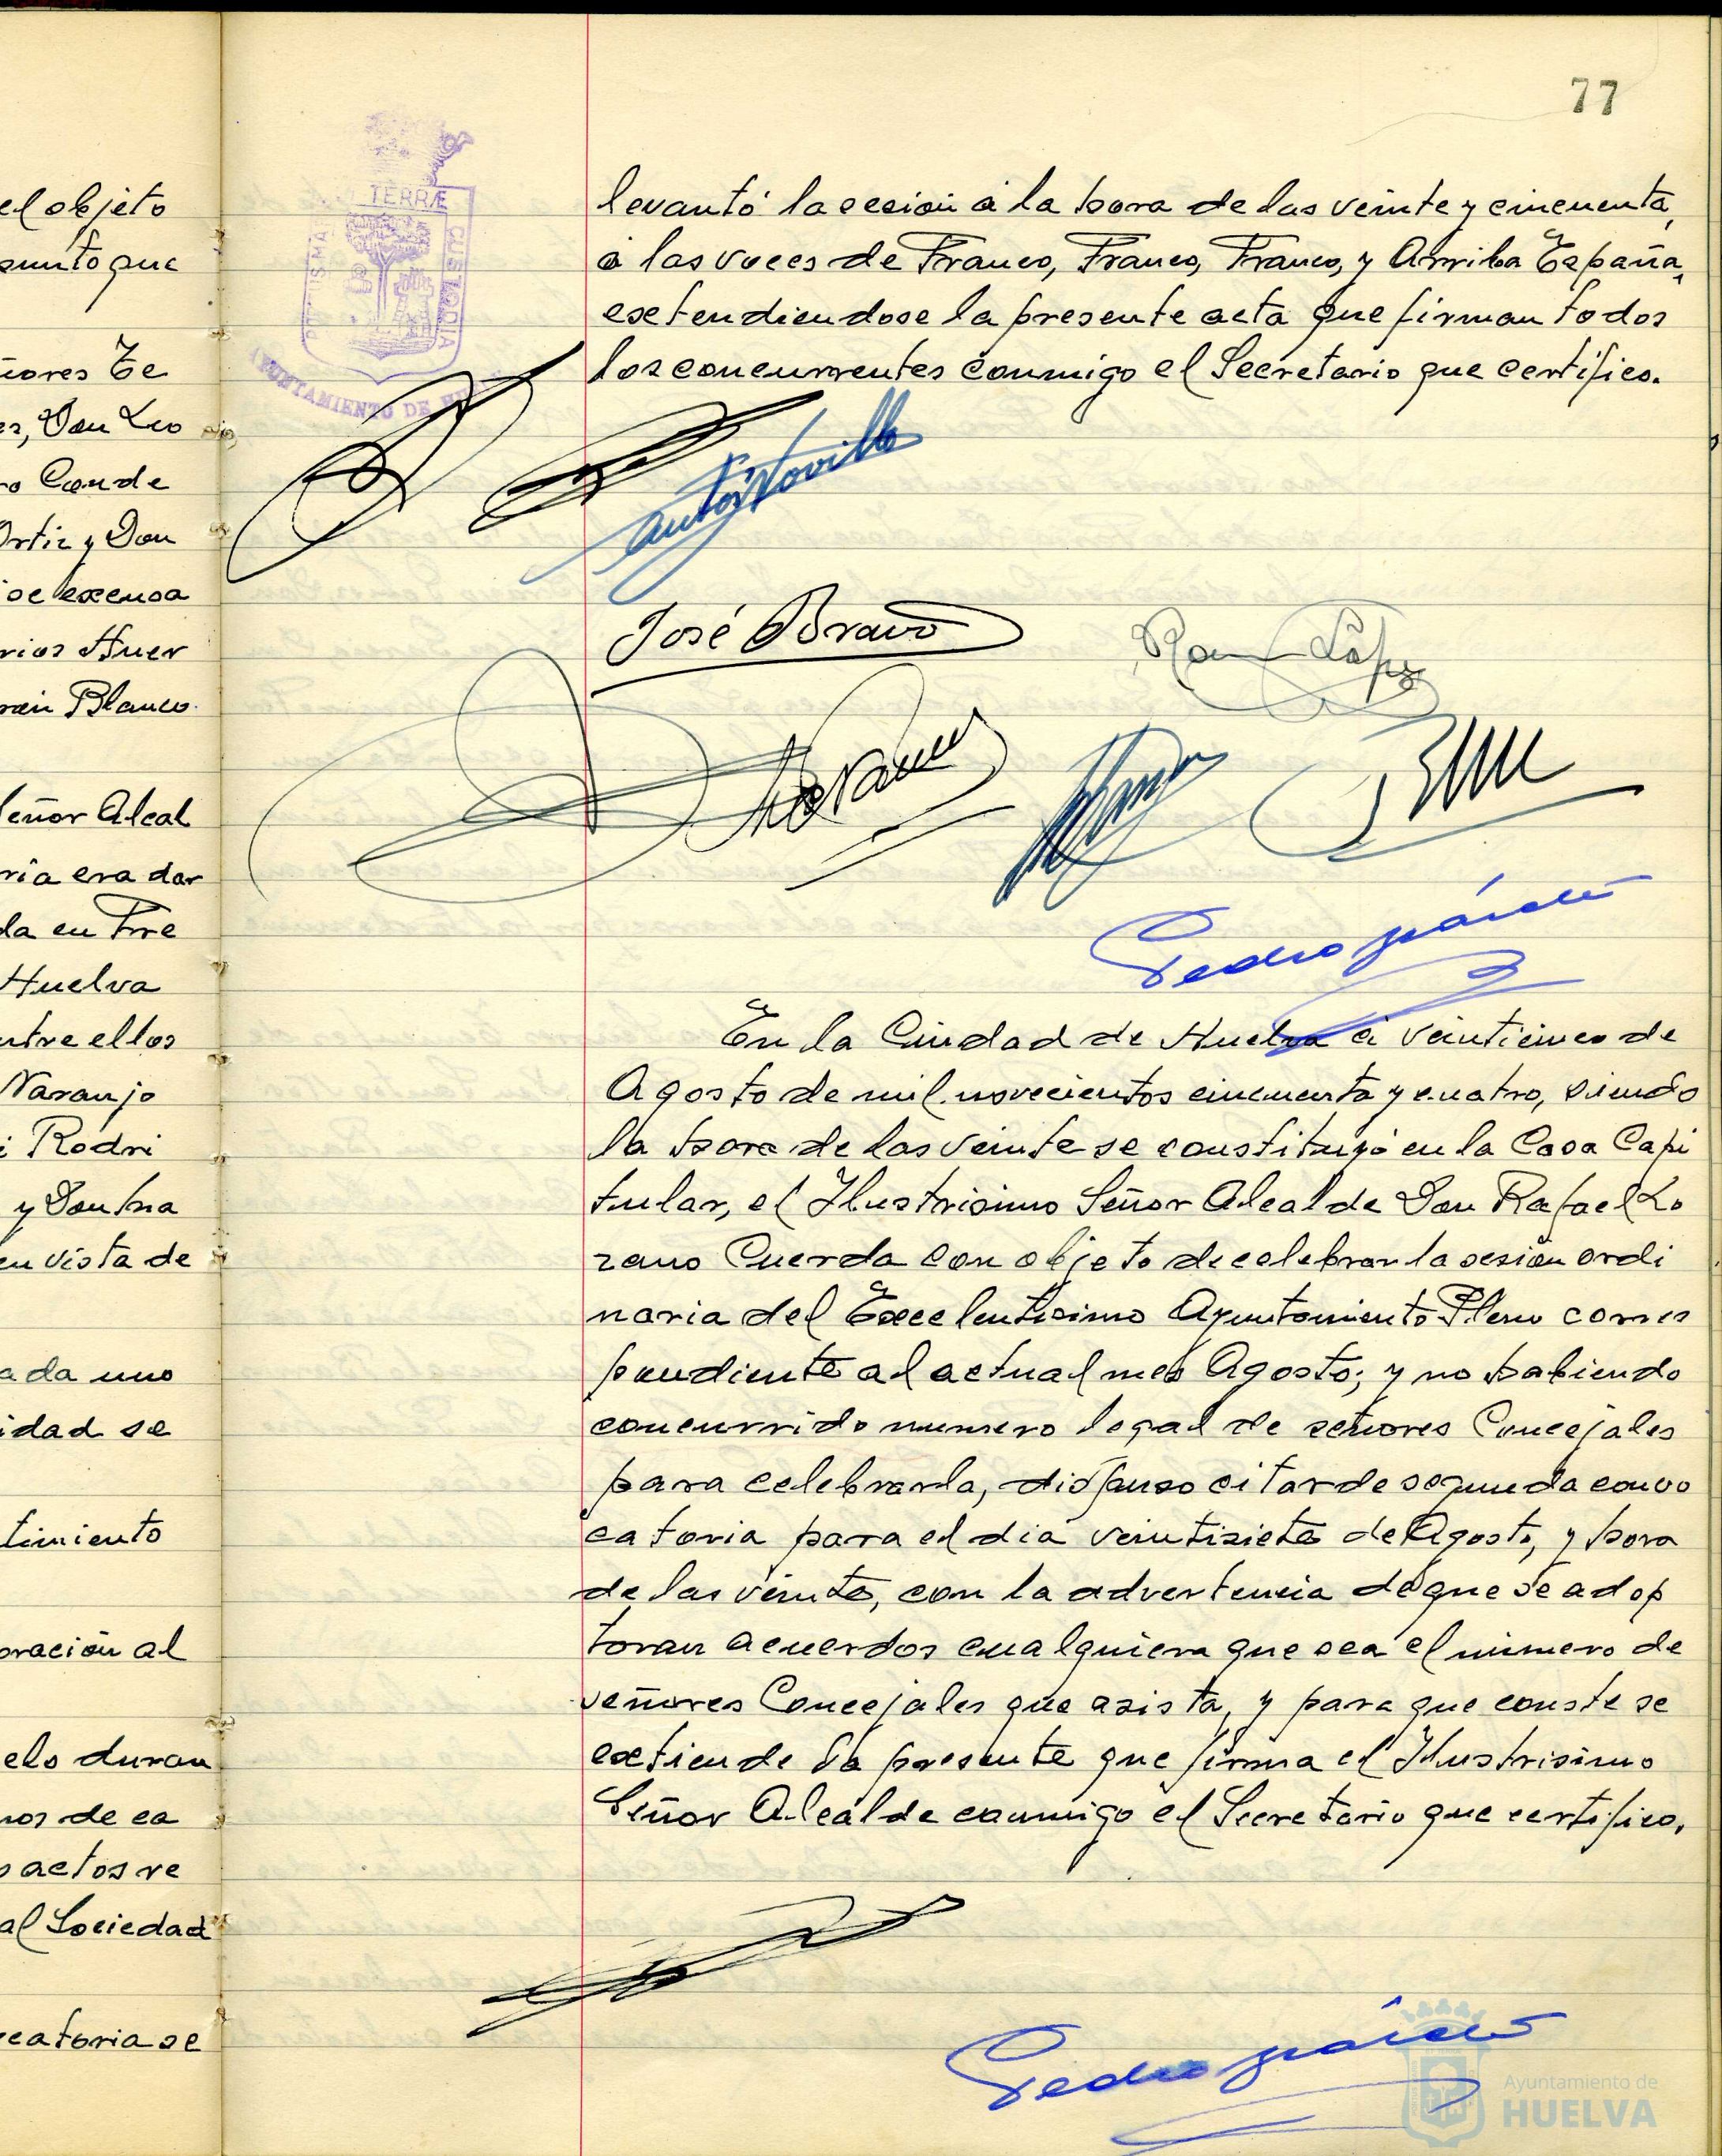 el objeto
sunto que
ñores Te
es, Don Leo
ro Conde
Ortiz y Don
se excusa
rios Huer
ran Blanco.
Señor Alcal
ria era dar
da en Tre
Huelva
ntre ellos
Naranjo
i Rodri
y Don Ma
en vista de
ada uno
idad se
timiento
oración al
elo duran
nos de ca
o actos re
al Sociedad
catoria se
77
TERRÆ
CUSTODIA
AYUNTAMIENTO DE HU
levantó la sesión a la hora de las veinte y cincuenta,
a las voces de Franco, Franco, Franco, y Arriba España,
esetendiendose la presente acta que firman todos
los concurrentes conmigo el Secretario que certifico.
José Bravo
Pedro García
En la Ciudad de Huelva a veinticinco de
Agosto de mil novecientos cincuenta y cuatro, siendo
la hora de las veinte se constituyó en la Casa Capi
tular, el Ilustrisimo Señor Alcalde Don Rafael Lo
zano Cuerda con objeto de celebrar la sesión ordi
naria del Excelentisimo Ayuntamiento Pleno corres
pondiente al actual mes Agosto; y no habiendo
concurrido numero legal de señores Concejales
para celebrarla, dispuso citar de segunda convo
catoria para el dia veintisiete de Agosto, y hora
de las veinte, con la advertencia de que se adop
toran acuerdos cualquiera que sea el numero de
señores Concejales que asista, y para que conste se
extiende la presente que firma el Ilustrisimo
Señor Alcalde conmigo el Secretario que certifico.
Pedro García
Ayuntamiento de
HUELVA